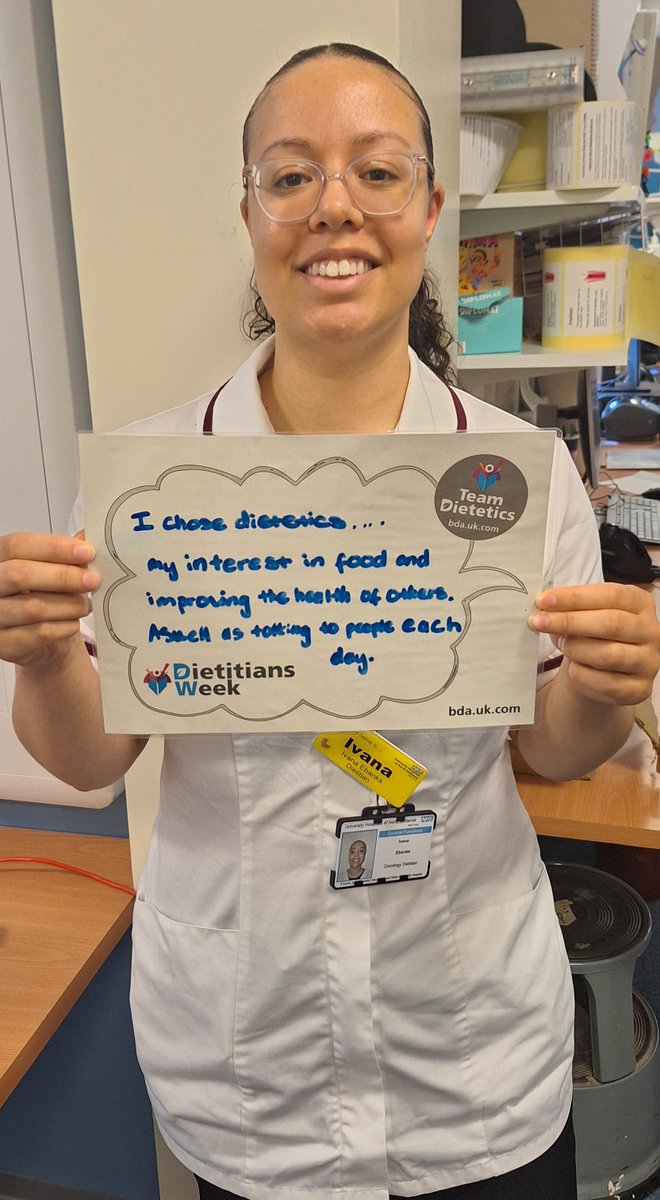 Team
Dietetics
bda.uk.com
I chose dietetics....
my interest in food and
improving the health of others.
Aswell as talking to people each
day.
Dietitians
Week
bda.uk.com
Ivana
Ivana Ebanks
Dietitian
NHS
Ivana
Ebanks
Oncology Dietitian
DIPLOMAT
DIPLOMAT